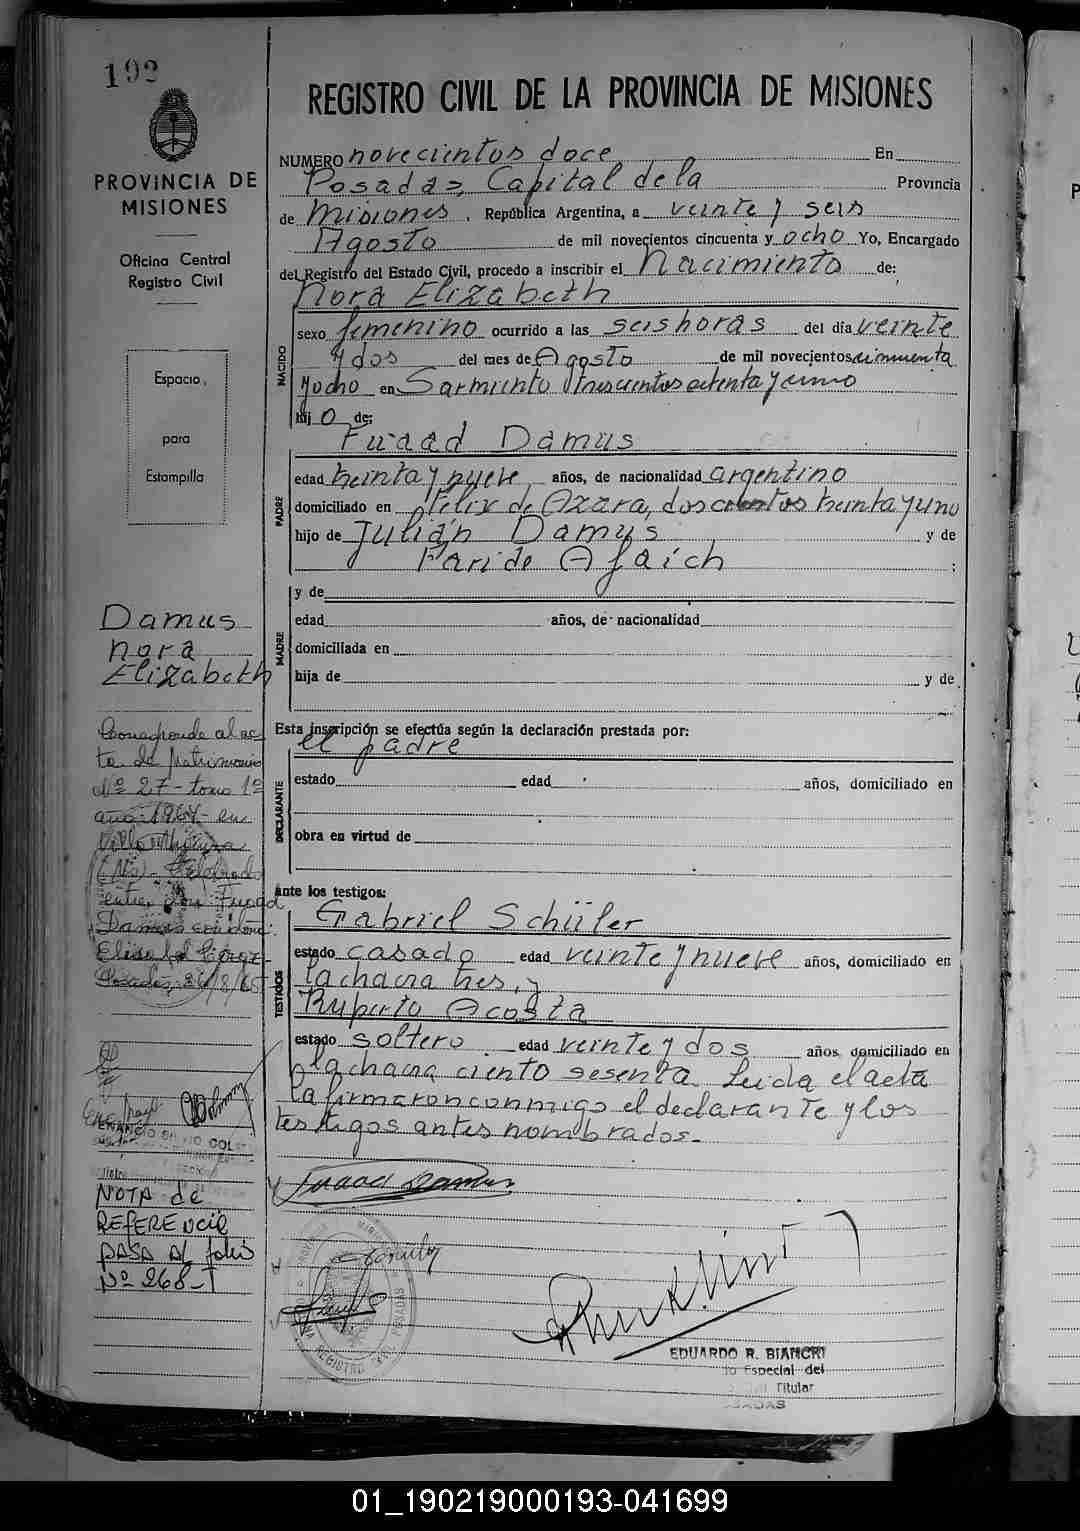 192
PROVINCIA DE
MISIONES
Oficina Central
Registro Civil
Espacio,
para
Estampilla
Damus
Nora
Elizabeth
Corresponde al ac-
ta de matrimonio
Nº 27 - tomo 1º
año 1964 - en
entre don Fuaad
Damus con doña
Posadas,
NOTA de
REFERENCIA
PASA AL folio
Nº 268-T
REGISTRO CIVIL DE LA PROVINCIA DE MISIONES
NUMERO novecientos doce En
Posadas, Capital de la Provincia
de Misiones, República Argentina, a veinte y seis
Agosto de mil novecientos cincuenta y ocho Yo, Encargado
del Registro del Estado Civil, procedo a inscribir el Nacimiento de:
Nora Elizabeth
NACIDO
sexo femenino ocurrido a las seis horas del día veinte
y dos del mes de Agosto de mil novecientos cincuenta
y ocho en Sarmiento trescientos ochenta y uno
hij o de:
Fuaad Damus
PADRE
edad treinta y nueve años, de nacionalidad argentino
domiciliado en Felix de Azara, doscientos treinta y uno
hijo de Julián Damus y de
Faride Afaich ;
MADRE
y de
edad años, de nacionalidad
domiciliada en
hija de y de
Esta inscripción se efectúa según la declaración prestada por:
el padre
DECLARANTE
estado edad años, domiciliado en
obra en virtud de
ante los testigos:
Gabriel Schüler
TESTIGOS
estado casado edad veinte y nueve años, domiciliado en
la chacra tres, y
Ruperto Acosta
estado soltero edad veinte y dos años, domiciliado en
la chacra ciento sesenta. Leida el acta
la firmaron conmigo el declarante y los
testigos antes nombrados.-
Fuaad Damus
REGISTRO CIVIL POSADAS
EDUARDO R. BIANCHI
Especial del
Titular
01_190219000193-041699